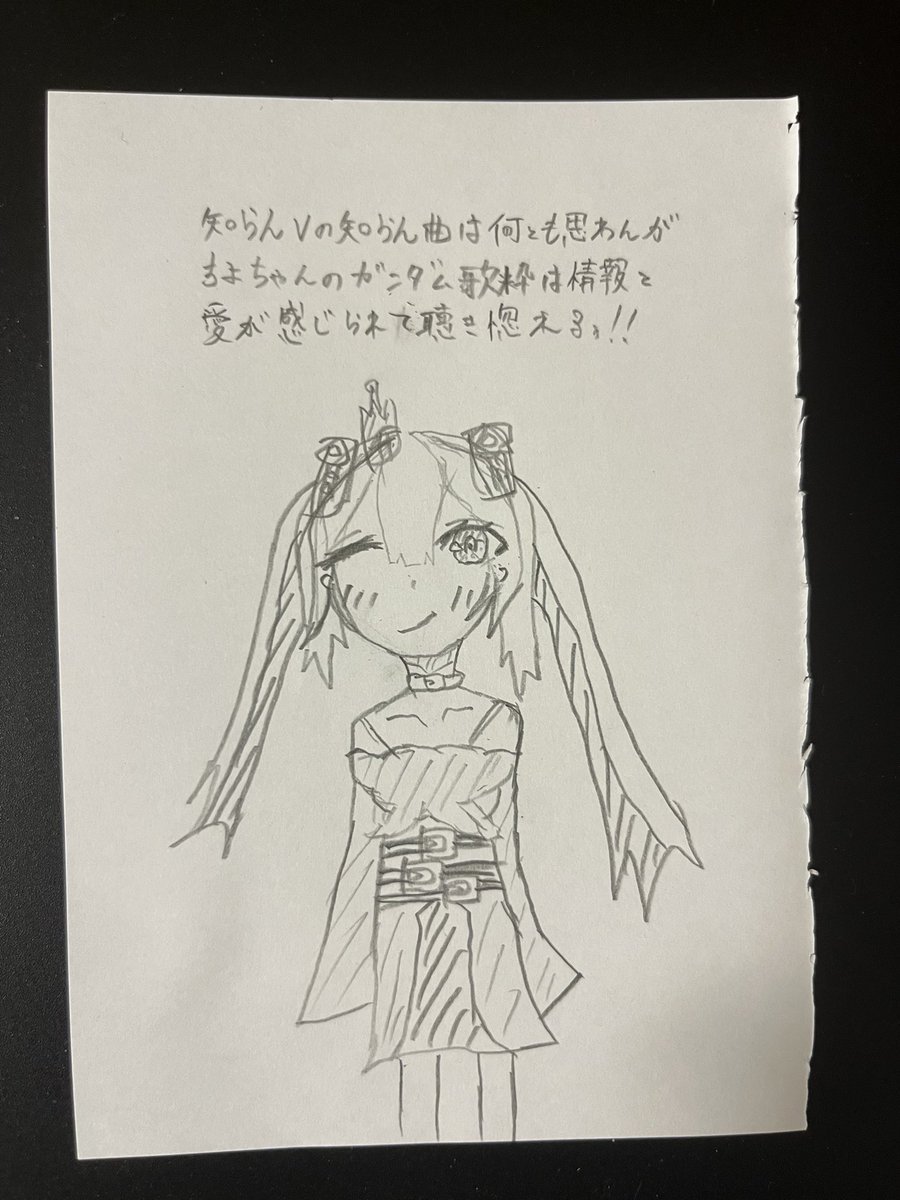 知らんVの知らん曲は何とも思わんが
ちよちゃんのガンダム歌枠は情報と
愛が感じられて聴き惚れるぅ!!